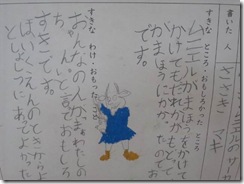 書いた人
ささき マキ
すきな ところ・おもしろかった ところ
ムニエルがまほうをかけて
かけてもだれか
がまほうにかかったの
がです。
すきな わけ・おもった こと
おんなの人が
ちゃん」と言ておもしろ
すきです。
ほいくえんのときからよ
あってよかった